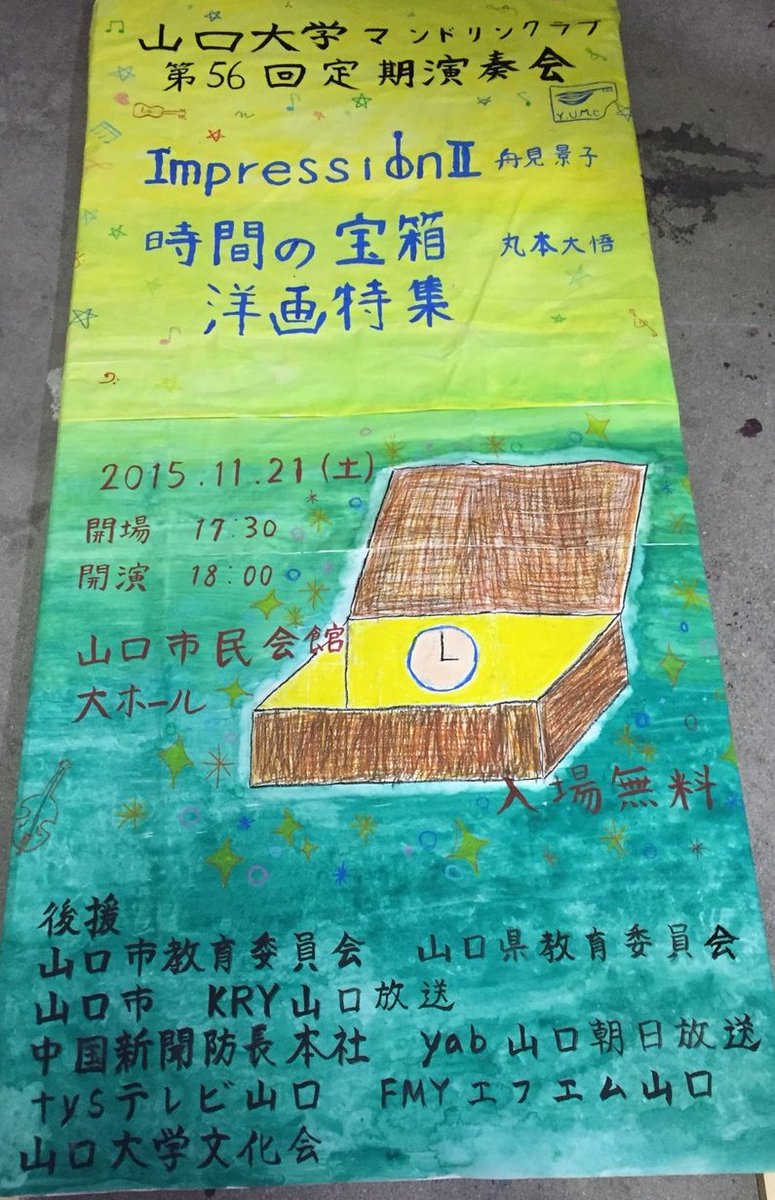 山口大学マンドリンクラブ
第56回定期演奏会
Y.U.M.C
ImpressionⅡ 舟見景子
時間の宝箱 丸本大悟
洋画特集
2015.11.21(土)
開場 17:30
開演 18:00
山口市民会館
大ホール
入場無料
後援
山口市教育委員会 山口県教育委員会
山口市 KRY山口放送
中国新聞防長本社 yab山口朝日放送
tysテレビ山口 FMYエフエム山口
山口大学文化会